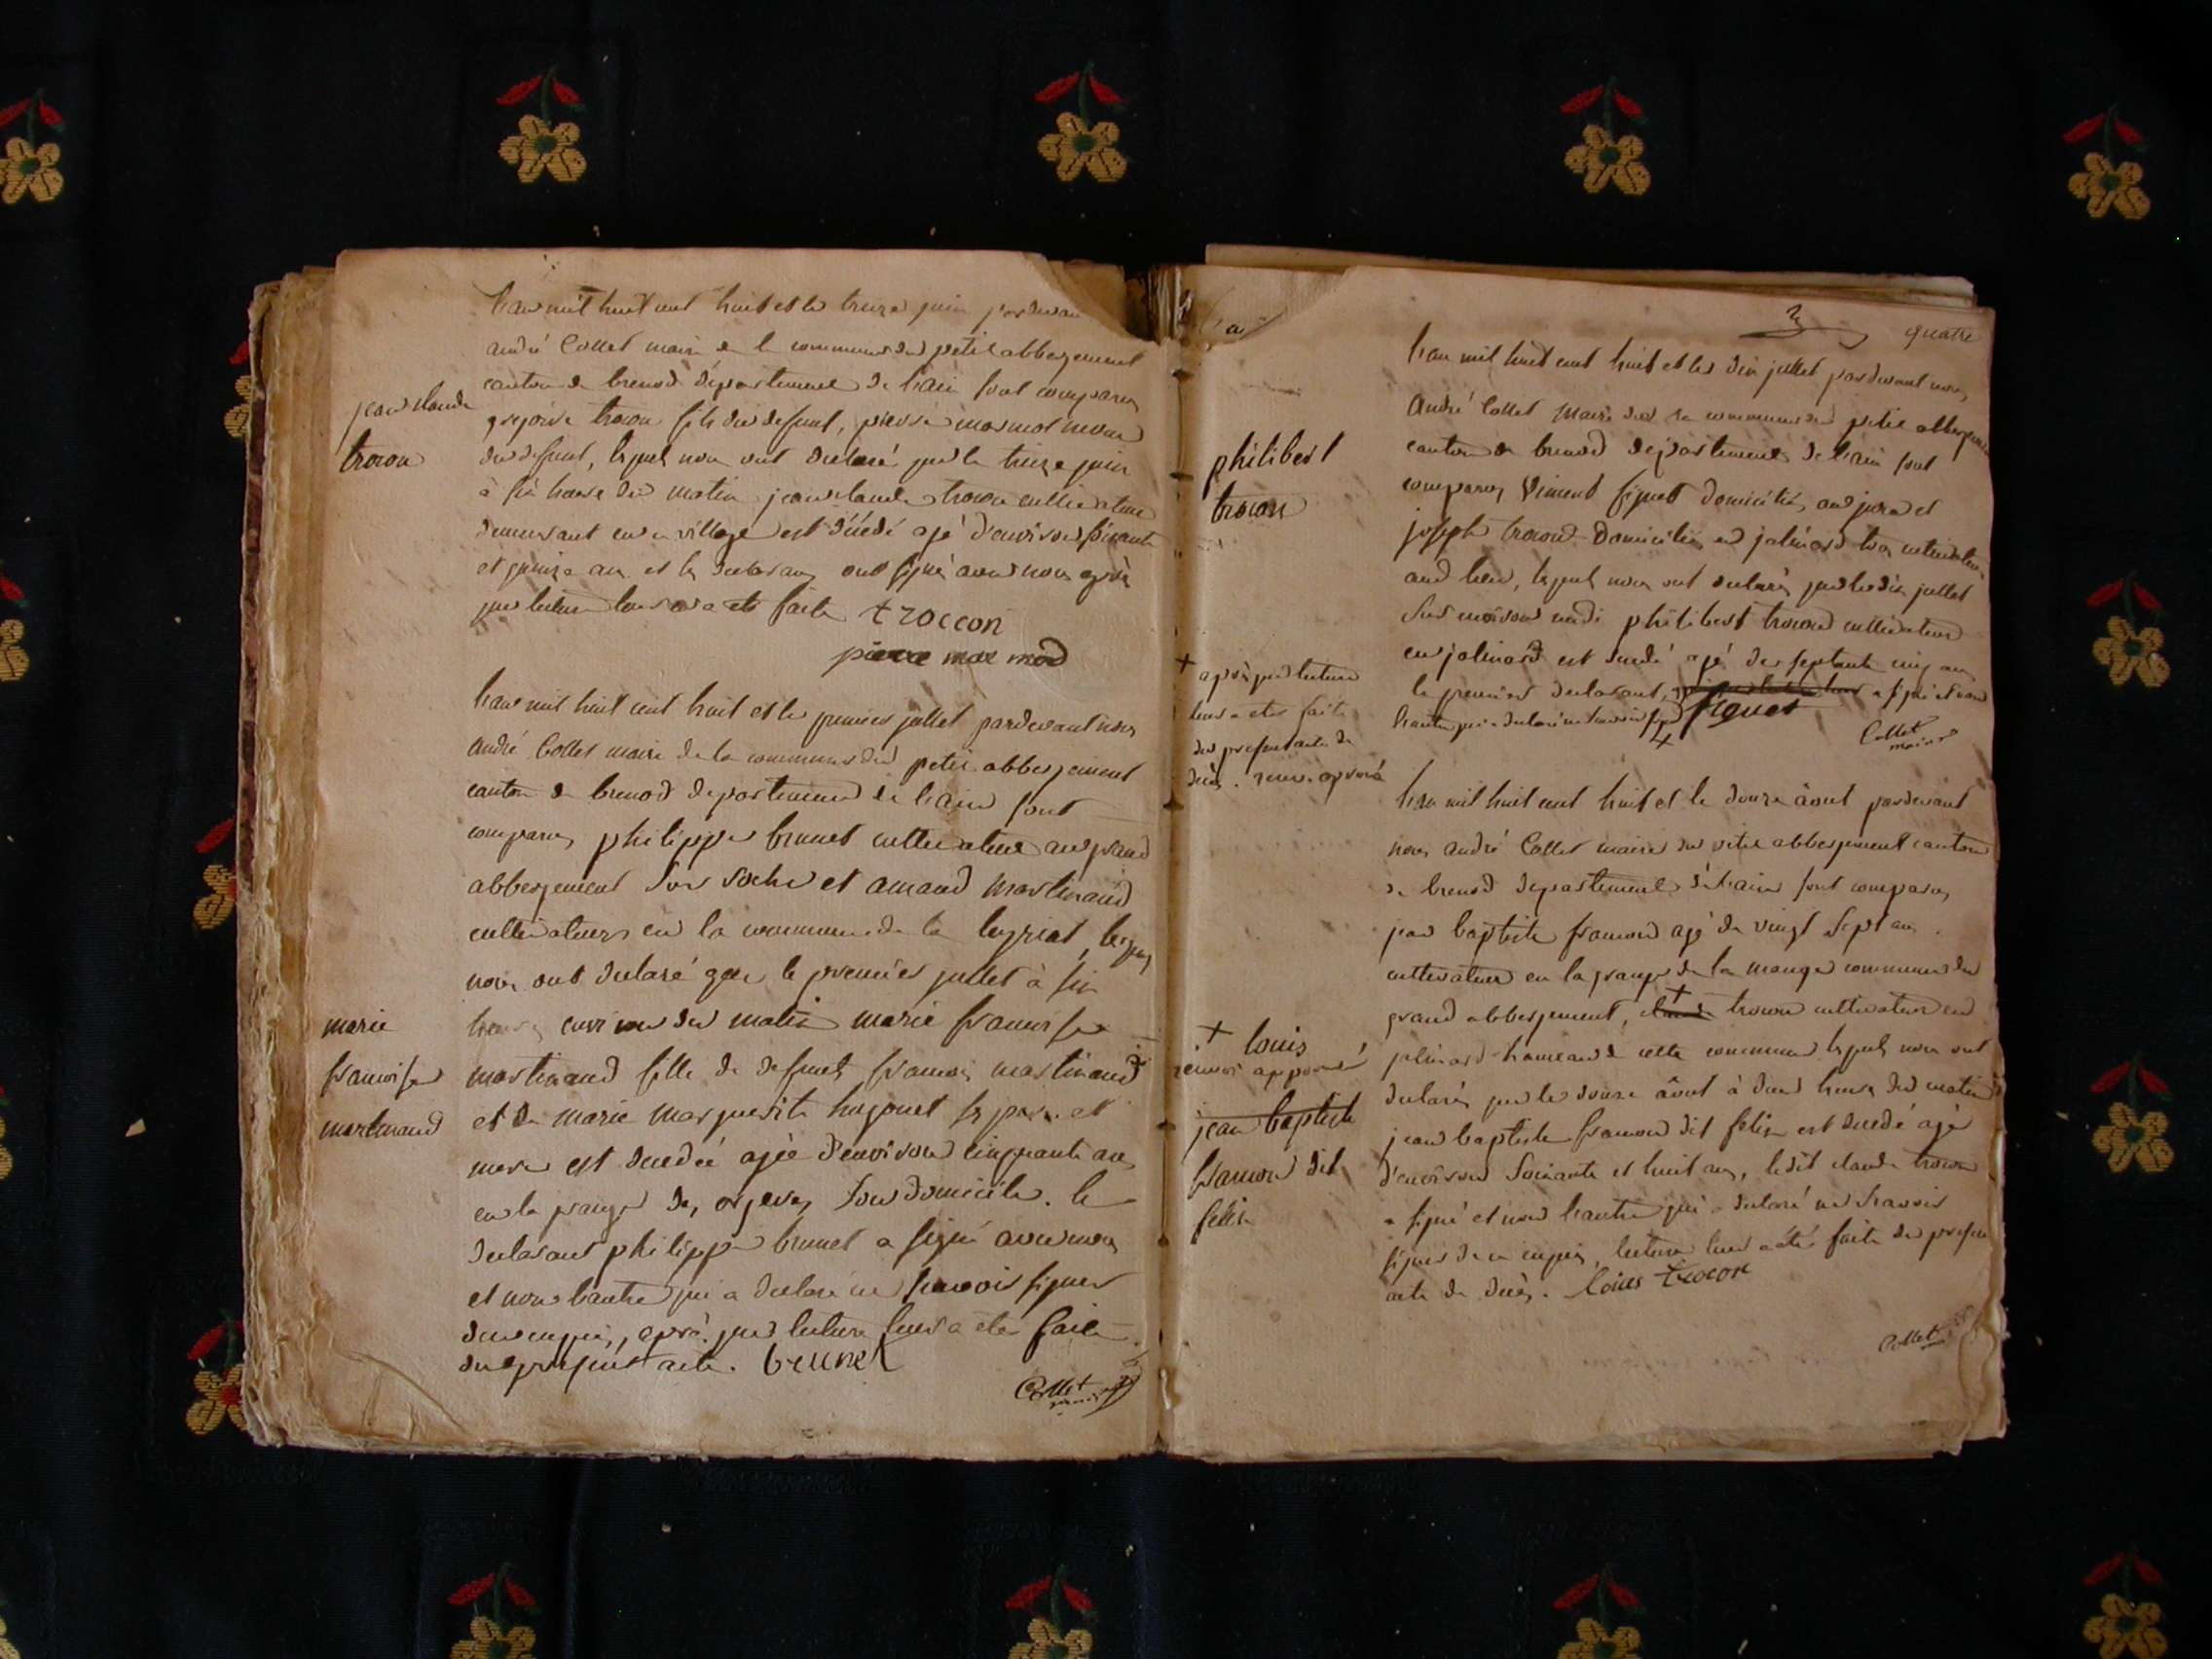 jean claude
trocon
l'an mil huit cent huit et le treize juin pardevan
andré Collet maire de la commune du petit abbergement
canton de brenod département de l'ain sont comparus
gregoire trocon fils du defunt, pierre marmot
du defunt, lequels nous ont declaré que le treize juin
à six heure du matin jean claude trocon cultivateur
demeurant en ce village est décédé agé d'environ soixante
et quinze ans et les declarans ont signé avec nous après
que lecture leur a été faite troccon
pierre mar mod
marie
francoise
martinaud
l'an mil huit cent huit et le premier jullet pardevant nous
andré Collet maire de la commune du petit abbergement
canton de brenod departement de l'ain sont
comparus philippe brunet cultivateur au grand
abbergement son et amand martinaud
cultivateurs en la commune de la leyriat, lequels
nous ont declaré que le premier jullet à six
heures environ du matin marie francoise
martinaud fille de defunt francois martinaud
et de marie marguerite hugonet ses pere et
mere est decedée agée d'environ cinquante ans
en la grange des son domicile. le
declarant philippe brunet a signé avec nous
et non l'autre qui a declaré ne scavoir signer
de ce enquis, après que lecture leur a été faite
du present acte. brunet
Collet
maire
quatre
philibert
trocon
l'an mil huit cent huit et les dix jullet pardevant nous
André Collet Maire de la commune du petit abbergement
canton de brenod departement de l'ain sont
comparus Viment figuet domicilié au jura et
joseph trocon domicilié en jalinard tous cultivateurs
aud lieu, lequels nous ont declarés que le dix jullet
sur environ midi philibert trocon cultivateur
en jalinard est decedé agé de septante cinq ans
le premier declarant, a signé et non
l'autre qui a declaré ne scavoir signer figuet
Collet
maire
+ après que lecture
leur a été faite
du present acte de
décès. renvoi approuvé
+ louis
renvoi approuvé
jean baptiste
framon dit
felix
l'an mil huit cent huit et le douze âout pardevant
nous andré Collet maire du petit abbergement canton
de brenod departement de l'ain sont comparus
jean baptiste framon agé de vingt sept ans
cultivateur en la grange de la manges commune du
grand abbergement, + trocon cultivateur en
jalinard hameau de cette commune lequels nous ont
declarés que le douze âout à deux heures du matin
jean baptiste framon dit felix est decedé agé
d'environ soixante et huit ans, ledit claude trocon
a signé et non l'autre qui a declaré ne scavoir
signer de ce enquis, lecture leur a été faite du present
acte de décès. louis trocon
Collet